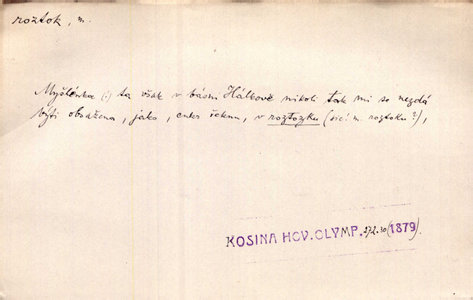 roztok, m.
Myšlénka (:) ta však v básni Hálkově nikoli tak mi se nezdá
býti obsažena, jako, cukr řeknu, v roztozku (sic! m. roztoku?),
KOSINA HOV. OLYMP. 272.30 (1879).